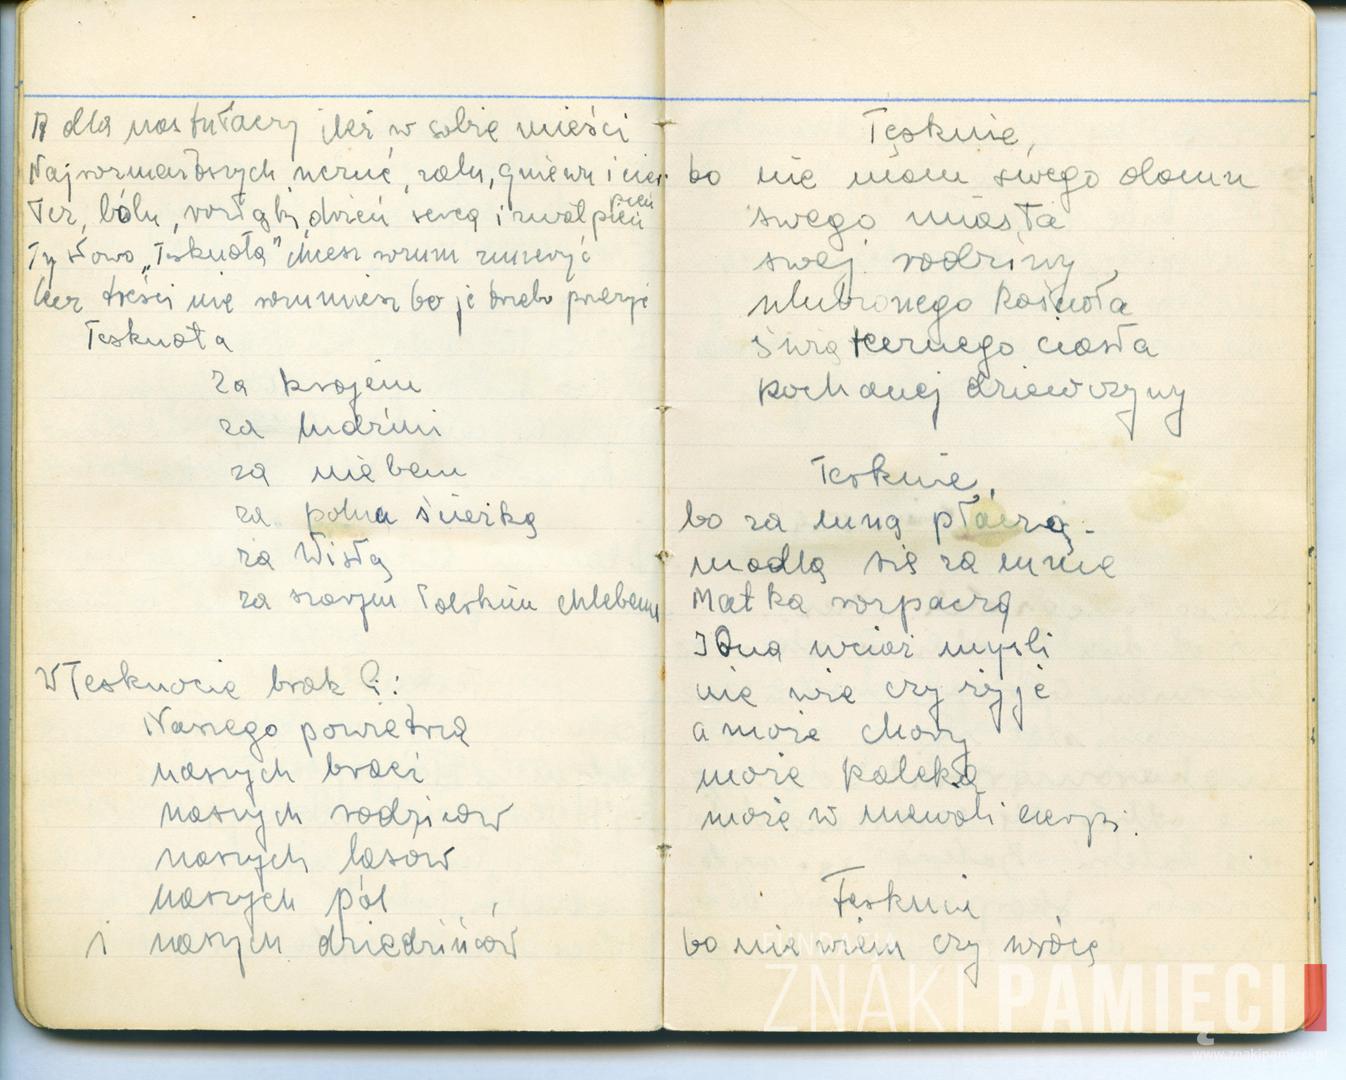 A dla nas tułaczy ileż w sobie mieści
Najrozmaitszych uczuć, żalu, gniewu i cier-
pień
Łez, bólu, rozłąki, drżeń serca i zwątpień
Ty słowo „Tęsknota” chcesz rozum
lecz treści nie rozumiesz bo je trzeba przeżyć
Tęsknota
za krajem
za ludźmi
za niebem
za polną ścieżką
za Wisłą
za szarym Polskim chlebem
W Tęsknocie brak Ci:
Naszego powietrza
naszych braci
naszych rodziców
naszych lasów
naszych pól
i naszych dziedzińców
Tęsknię,
bo nie mam swego domu
swego miasta
swej rodziny,
ulubionego kościoła
świątecznego ciasta
kochanej dziewczyny
Tęsknię,
bo za mną płaczą -
modlą się za mnie
Matka rozpacza
Ona wciąż myśli
nie wie czy żyje
a może chory
może kaleka
może w niewoli cierpi.
Tęskni
bo nie wiem czy wrócę
FUNDACJA
ZNAKI PAMIĘCI
www.znakipamieci.pl